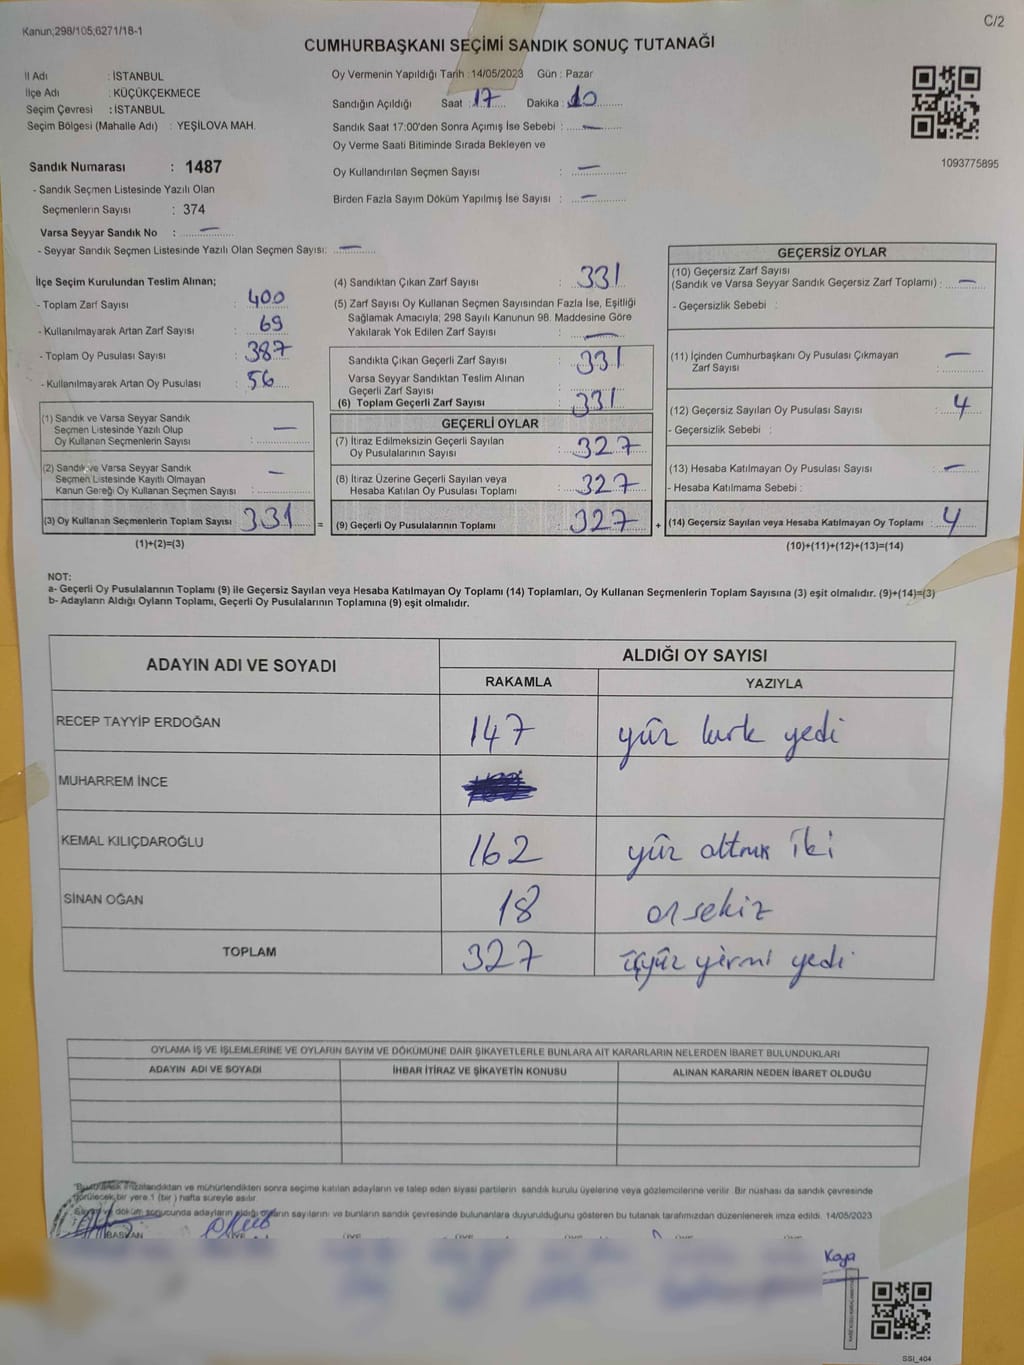 Kanun;298/105;6271/18-1
C/2
CUMHURBAŞKANI SEÇİMİ SANDIK SONUÇ TUTANAĞI
İl Adı : İSTANBUL
İlçe Adı : KÜÇÜKÇEKMECE
Seçim Çevresi : İSTANBUL
Seçim Bölgesi (Mahalle Adı) : YEŞİLOVA MAH.
Sandık Numarası : 1487
- Sandık Seçmen Listesinde Yazılı Olan
Seçmenlerin Sayısı : 374
Varsa Seyyar Sandık No : —
- Seyyar Sandık Seçmen Listesinde Yazılı Olan Seçmen Sayısı: —
Oy Vermenin Yapıldığı Tarih : 14/05/2023 Gün : Pazar
Sandığın Açıldığı Saat : 17 Dakika : 10
Sandık Saat 17:00'den Sonra Açımış İse Sebebi : —
Oy Verme Saati Bitiminde Sırada Bekleyen ve
Oy Kullandırılan Seçmen Sayısı : —
Birden Fazla Sayım Döküm Yapılmış İse Sayısı : —
1093775895
İlçe Seçim Kurulundan Teslim Alınan;
- Toplam Zarf Sayısı : 400
- Kullanılmayarak Artan Zarf Sayısı : 69
- Toplam Oy Pusulası Sayısı : 387
- Kullanılmayarak Artan Oy Pusulası : 56
(1) Sandık ve Varsa Seyyar Sandık
Seçmen Listesinde Yazılı Olup
Oy Kullanan Seçmenlerin Sayısı : —
(2) Sandık ve Varsa Seyyar Sandık
Seçmen Listesinde Kayıtlı Olmayan
Kanun Gereği Oy Kullanan Seçmen Sayısı : —
(3) Oy Kullanan Seçmenlerin Toplam Sayısı 331 =
(1)+(2)=(3)
(4) Sandıktan Çıkan Zarf Sayısı : 331
(5) Zarf Sayısı Oy Kullanan Seçmen Sayısından Fazla İse, Eşitliği
Sağlamak Amacıyla; 298 Sayılı Kanunun 98. Maddesine Göre
Yakılarak Yok Edilen Zarf Sayısı : —
Sandıkta Çıkan Geçerli Zarf Sayısı : 331
Varsa Seyyar Sandıktan Teslim Alınan
Geçerli Zarf Sayısı :
(6) Toplam Geçerli Zarf Sayısı : 331
GEÇERLİ OYLAR
(7) İtiraz Edilmeksizin Geçerli Sayılan
Oy Pusulalarının Sayısı : 327
(8) İtiraz Üzerine Geçerli Sayılan veya
Hesaba Katılan Oy Pusulası Toplamı : 327
(9) Geçerli Oy Pusulalarının Toplamı : 327 +
GEÇERSİZ OYLAR
(10) Geçersiz Zarf Sayısı
(Sandık ve Varsa Seyyar Sandık Geçersiz Zarf Toplamı) : —
- Geçersizlik Sebebi :
(11) İçinden Cumhurbaşkanı Oy Pusulası Çıkmayan
Zarf Sayısı : —
(12) Geçersiz Sayılan Oy Pusulası Sayısı : 4
- Geçersizlik Sebebi :
(13) Hesaba Katılmayan Oy Pusulası Sayısı : —
- Hesaba Katılmama Sebebi :
(14) Geçersiz Sayılan veya Hesaba Katılmayan Oy Toplamı : 4
(10)+(11)+(12)+(13)=(14)
NOT:
a- Geçerli Oy Pusulalarının Toplamı (9) ile Geçersiz Sayılan veya Hesaba Katılmayan Oy Toplamı (14) Toplamları, Oy Kullanan Seçmenlerin Toplam Sayısına (3) eşit olmalıdır. (9)+(14)=(3)
b- Adayların Aldığı Oyların Toplamı, Geçerli Oy Pusulalarının Toplamına (9) eşit olmalıdır.
ADAYIN ADI VE SOYADI ALDIĞI OY SAYISI
RAKAMLA YAZIYLA
RECEP TAYYİP ERDOĞAN 147 yüz kırk yedi
MUHARREM İNCE
KEMAL KILIÇDAROĞLU 162 yüz altmış iki
SİNAN OĞAN 18 onsekiz
TOPLAM 327 üçyüz yirmi yedi
OYLAMA İŞ VE İŞLEMLERİNE VE OYLARIN SAYIM VE DÖKÜMÜNE DAİR ŞİKAYETLERLE BUNLARA AİT KARARLARIN NELERDEN İBARET BULUNDUKLARI
ADAYIN ADI VE SOYADI İHBAR İTİRAZ VE ŞİKAYETİN KONUSU ALINAN KARARIN NEDEN İBARET OLDUĞU
imzalandıktan ve mühürlendikten sonra seçime katılan adayların ve talep eden siyasi partilerin sandık kurulu üyelerine veya gözlemcilerine verilir. Bir nüshası da sandık çevresinde
görülecek bir yere 1 (bir ) hafta süreyle asılır.
döküm sonucunda adayların aldığı oyların sayılarını ve bunların sandık çevresinde bulunanlara duyurulduğunu gösteren bu tutanak tarafımızdan düzenlenerek imza edildi. 14/05/2023
BAŞKAN ÜYE ÜYE ÜYE ÜYE ÜYE ÜYE
Kaya
SSI_404